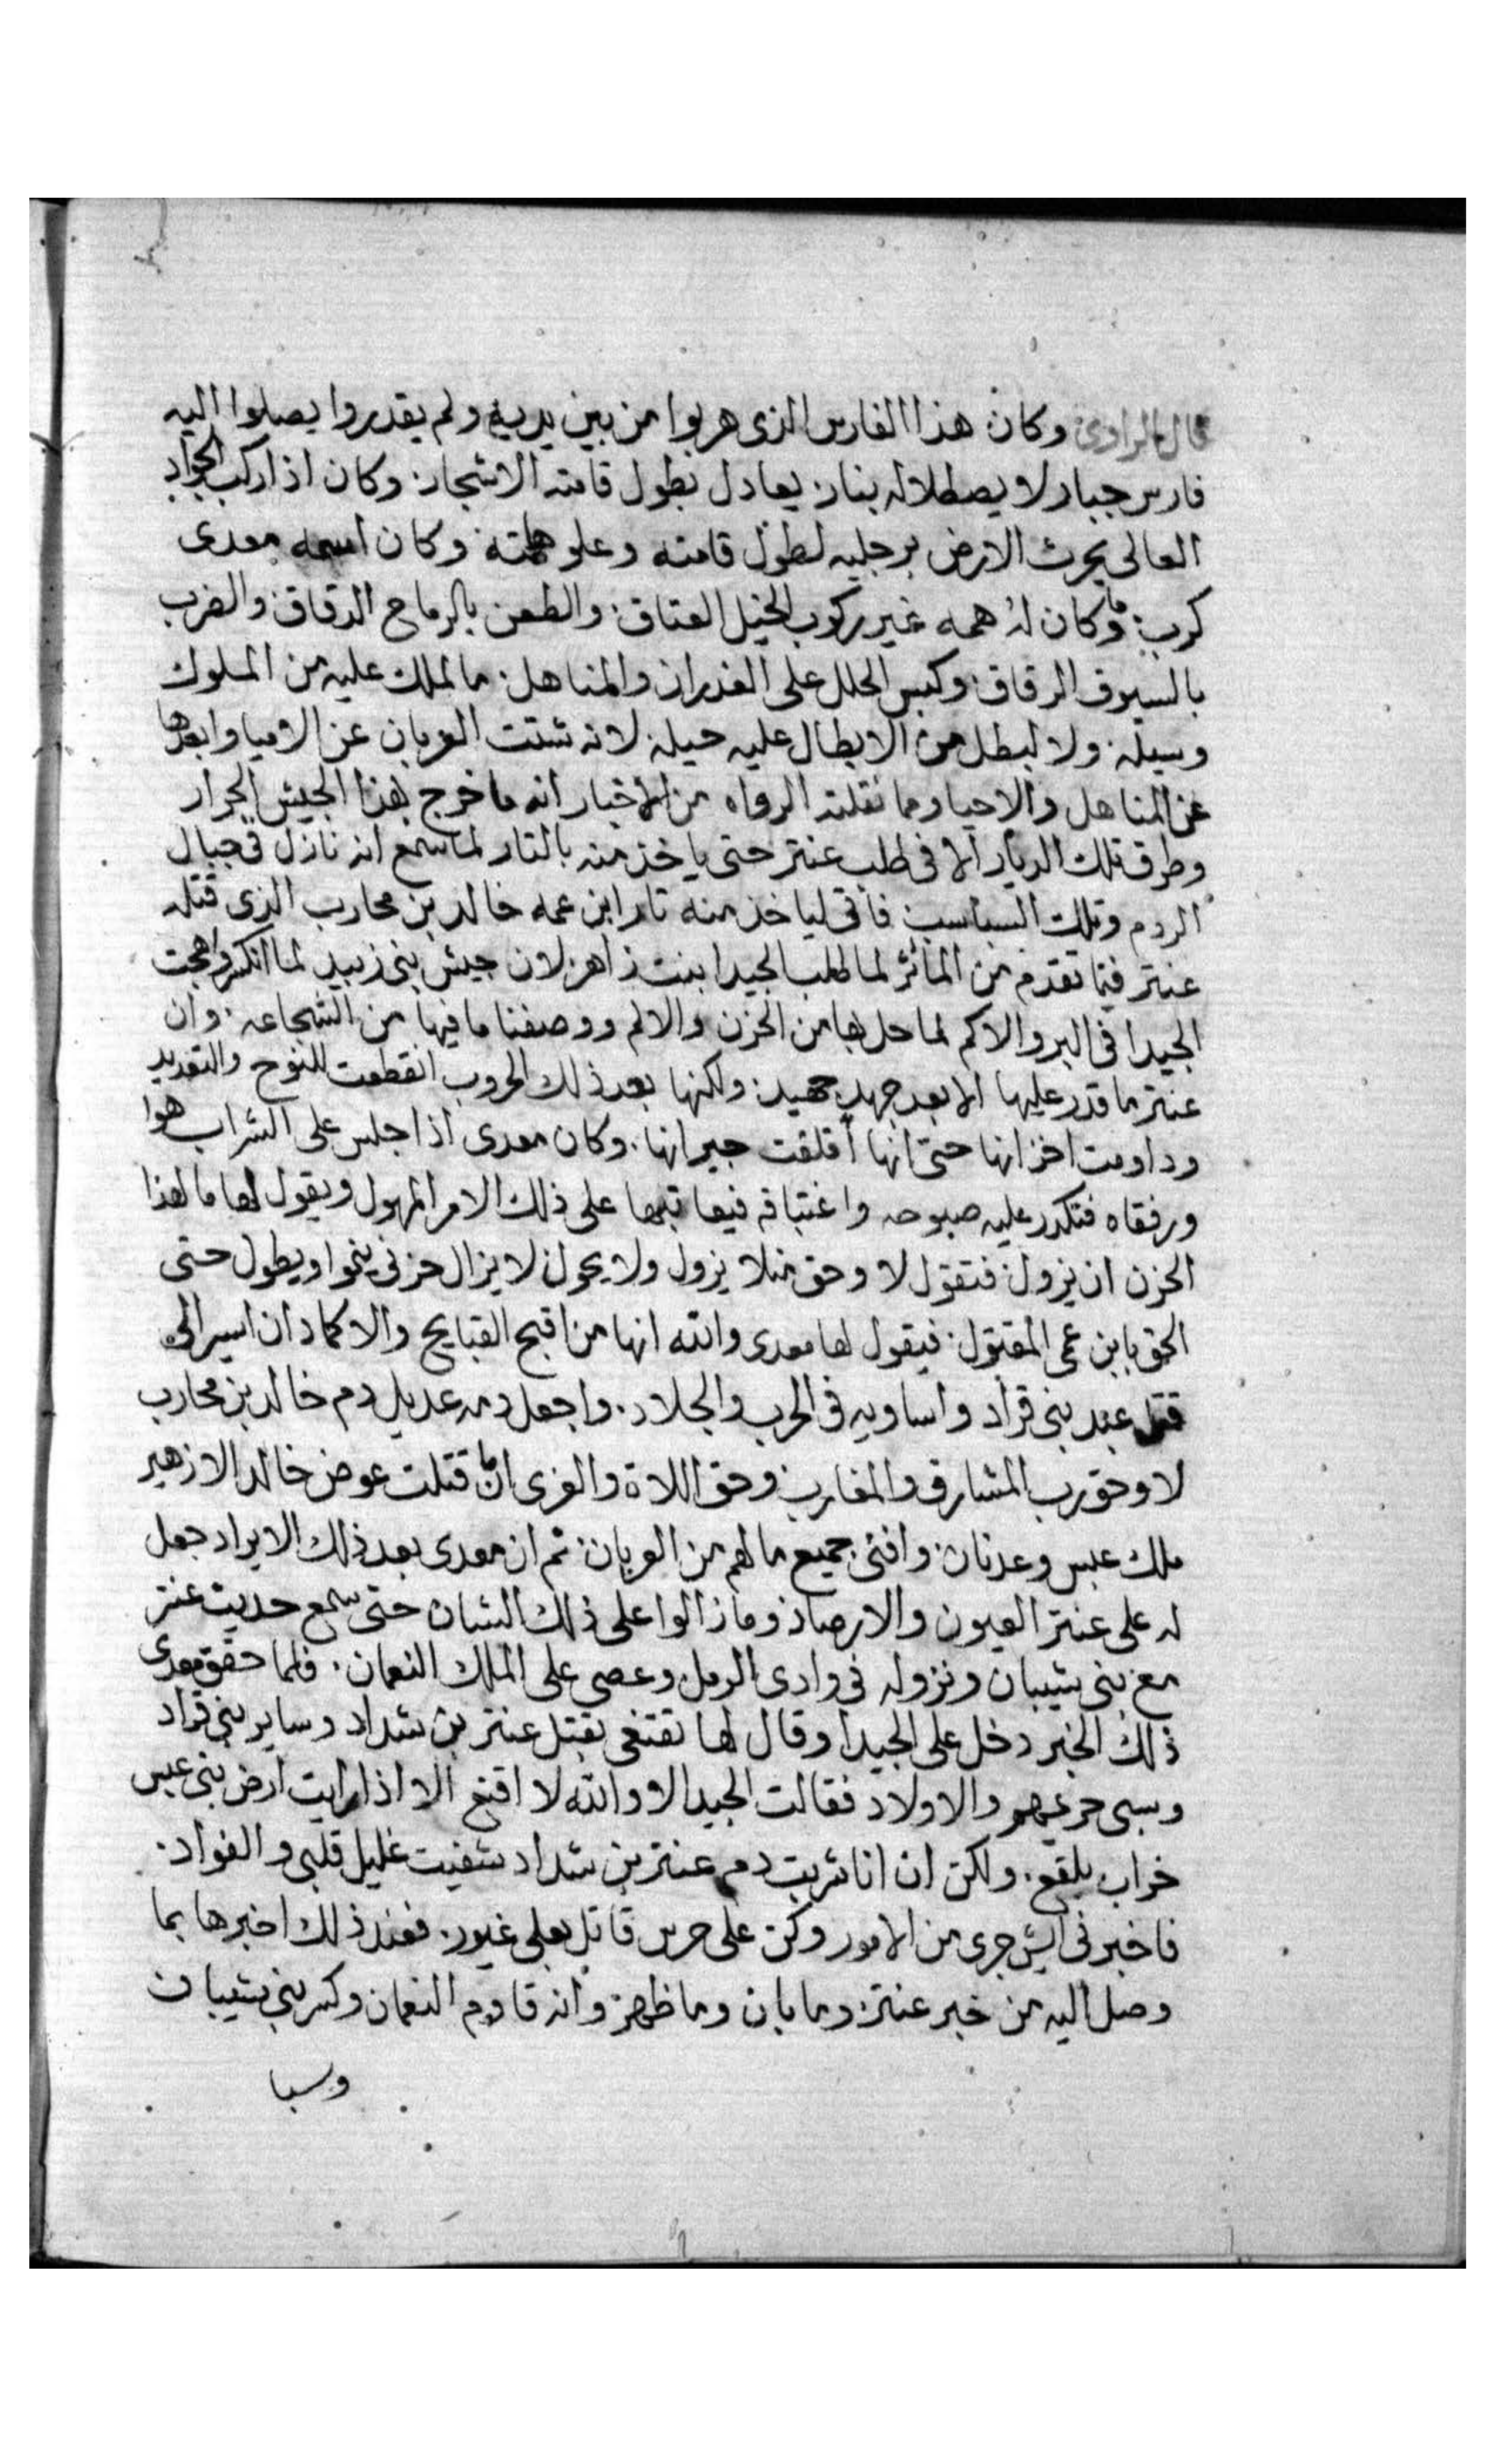 قال الراوى وكان هذا الفارس الذى هربوا من بين يديه ولم يقدروا يصلوا اليه
فارس جبار لا يصطلا له بنار يعادل بطول قامته الاشجار وكان اذا ركب الجواد
العالى يحرث الارض برجليه لطول قامته وعلو همته وكان اسمه معدى
كرب وما كان له همه غير ركوب الخيل العتاق والطعن بالرماح الدقاق والضرب
بالسيوف الرقاق وكبس الحلل على الغدران والمناهل ما لملك عليه من الملوك
وسيله ولا لبطل من الابطال عليه حيله لانه شتت العربان عن الامياه وابعدها
عن المناهل والاحيا ومما نقلته الرواه من الاخبار انه ما خرج بهذا الجيش الجرار
وطرق تلك الديار الا فى طلب عنتر حتى ياخذ منه بالتار لما سمع انه نازل فى جبال
الردم وتلك السباسب فاتى لياخذ منه تار ابن عمه خالد بن محارب الذى قتله
عنتر فيما تقدم من المآثر لما طلب الجيدا بنت زاهر لان جيش بنى زبيد لما انكسر وهجت
الجيدا فى البر والاكم لما حل بها من الحزن والالم ووصفنا ما فيها من الشجاعه وان
عنتر ما قدر عليها الا بعد جهد جهيد ولكنها بعد ذلك الحروب انقطعت للنوح والتعديد
وداومت احزانها حتى انها أقلقت جيرانها وكان معدى اذا جلس على الشراب هوا
ورفقاه فتكدر عليه صبوحه واغتباقه فيعاتبها على ذلك الامر المهول ويقول لها ما لهذا
الحزن ان يزول فتقول لا وحق من لا يزول ولا يحول لا يزال حزنى ينموا ويطول حتى
الحق بابن عمى المقتول فيقول لها معدى والله انها من اقبح القبايح والاكماد ان اسير الى
قتل عبد بنى قراد واساويه فى الحرب والجلاد واجعل دمه عديل دم خالد بن محارب
لا وحق رب المشارق والمغارب وحق اللاة والعزى انى ما قتلت عوض خالد الا زهير
ملك عبس وعدنان وافنى جميع ما لهم من العربان ثم ان معدى بعد ذلك الايراد جعل
له على عنتر العيون والارصاد وما زالوا على ذلك الشان حتى سمع حديث عنتر
مع بنى شيبان ونزوله فى وادى الرمل وعصى على الملك النعمان فلما حقق معدى
ذلك الخبر دخل على الجيدا وقال لها تقتنعى بقتل عنتر بن شداد وساير بنى قراد
وسبى حريمهم والاولاد فقالت الجيدا لا والله لا اقنع الا اذا رايت ارض بنى عبس
خراب بلقع ولكن ان انا شربت دم عنتر بن شداد شفيت غليل قلبى والفواد
فاخبرنى ايش جرى من الامور وكن على حرس قاتل بعلى غيور فعند ذلك اخبرها بما
وصل اليه من خبر عنتر وما بان وما ظهر وانه قاوم النعمان وكسر بنى شيبان
وسبا